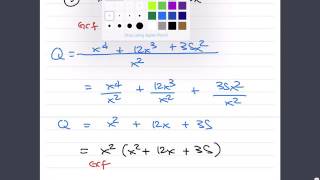 GCF
Q = x⁴ + 12x³ + 35x² / x²
= x⁴/x² + 12x³/x² + 35x²/x²
Q = x² + 12x + 35
= x² (x² + 12x + 35)
GCF